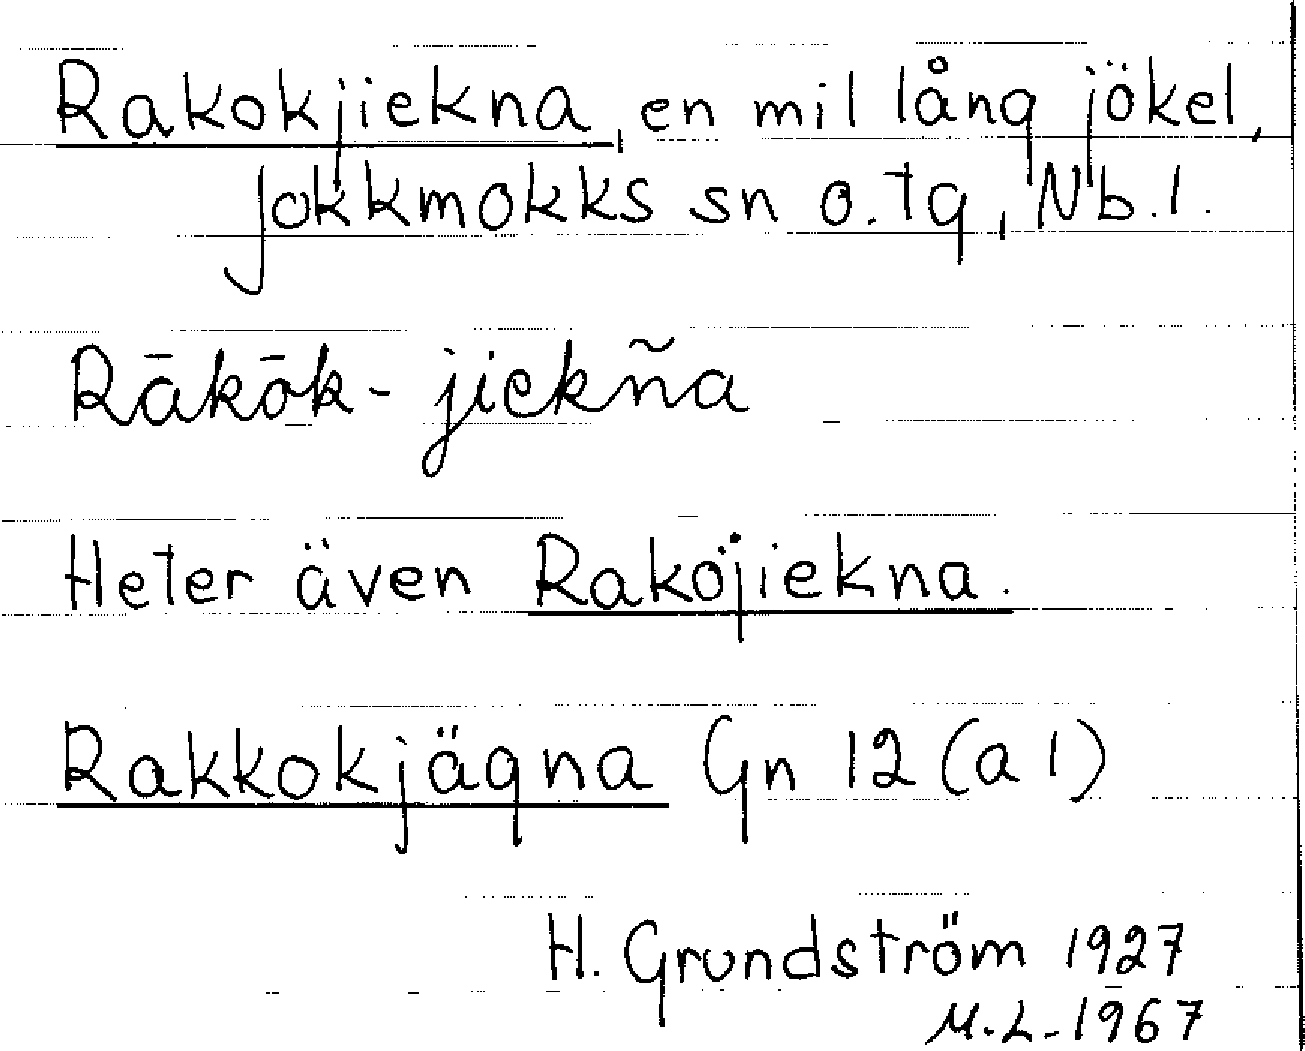 Rakokjiekna, en mil lång jökel,
Jokkmokks sn o. tg, Nb. l.
Rākōk-jiekn̄̃a
Heter även Rakojiekna.
Rakkokjägna Gn 12 (a 1)
H. Grundström 1927
M. L. 1967